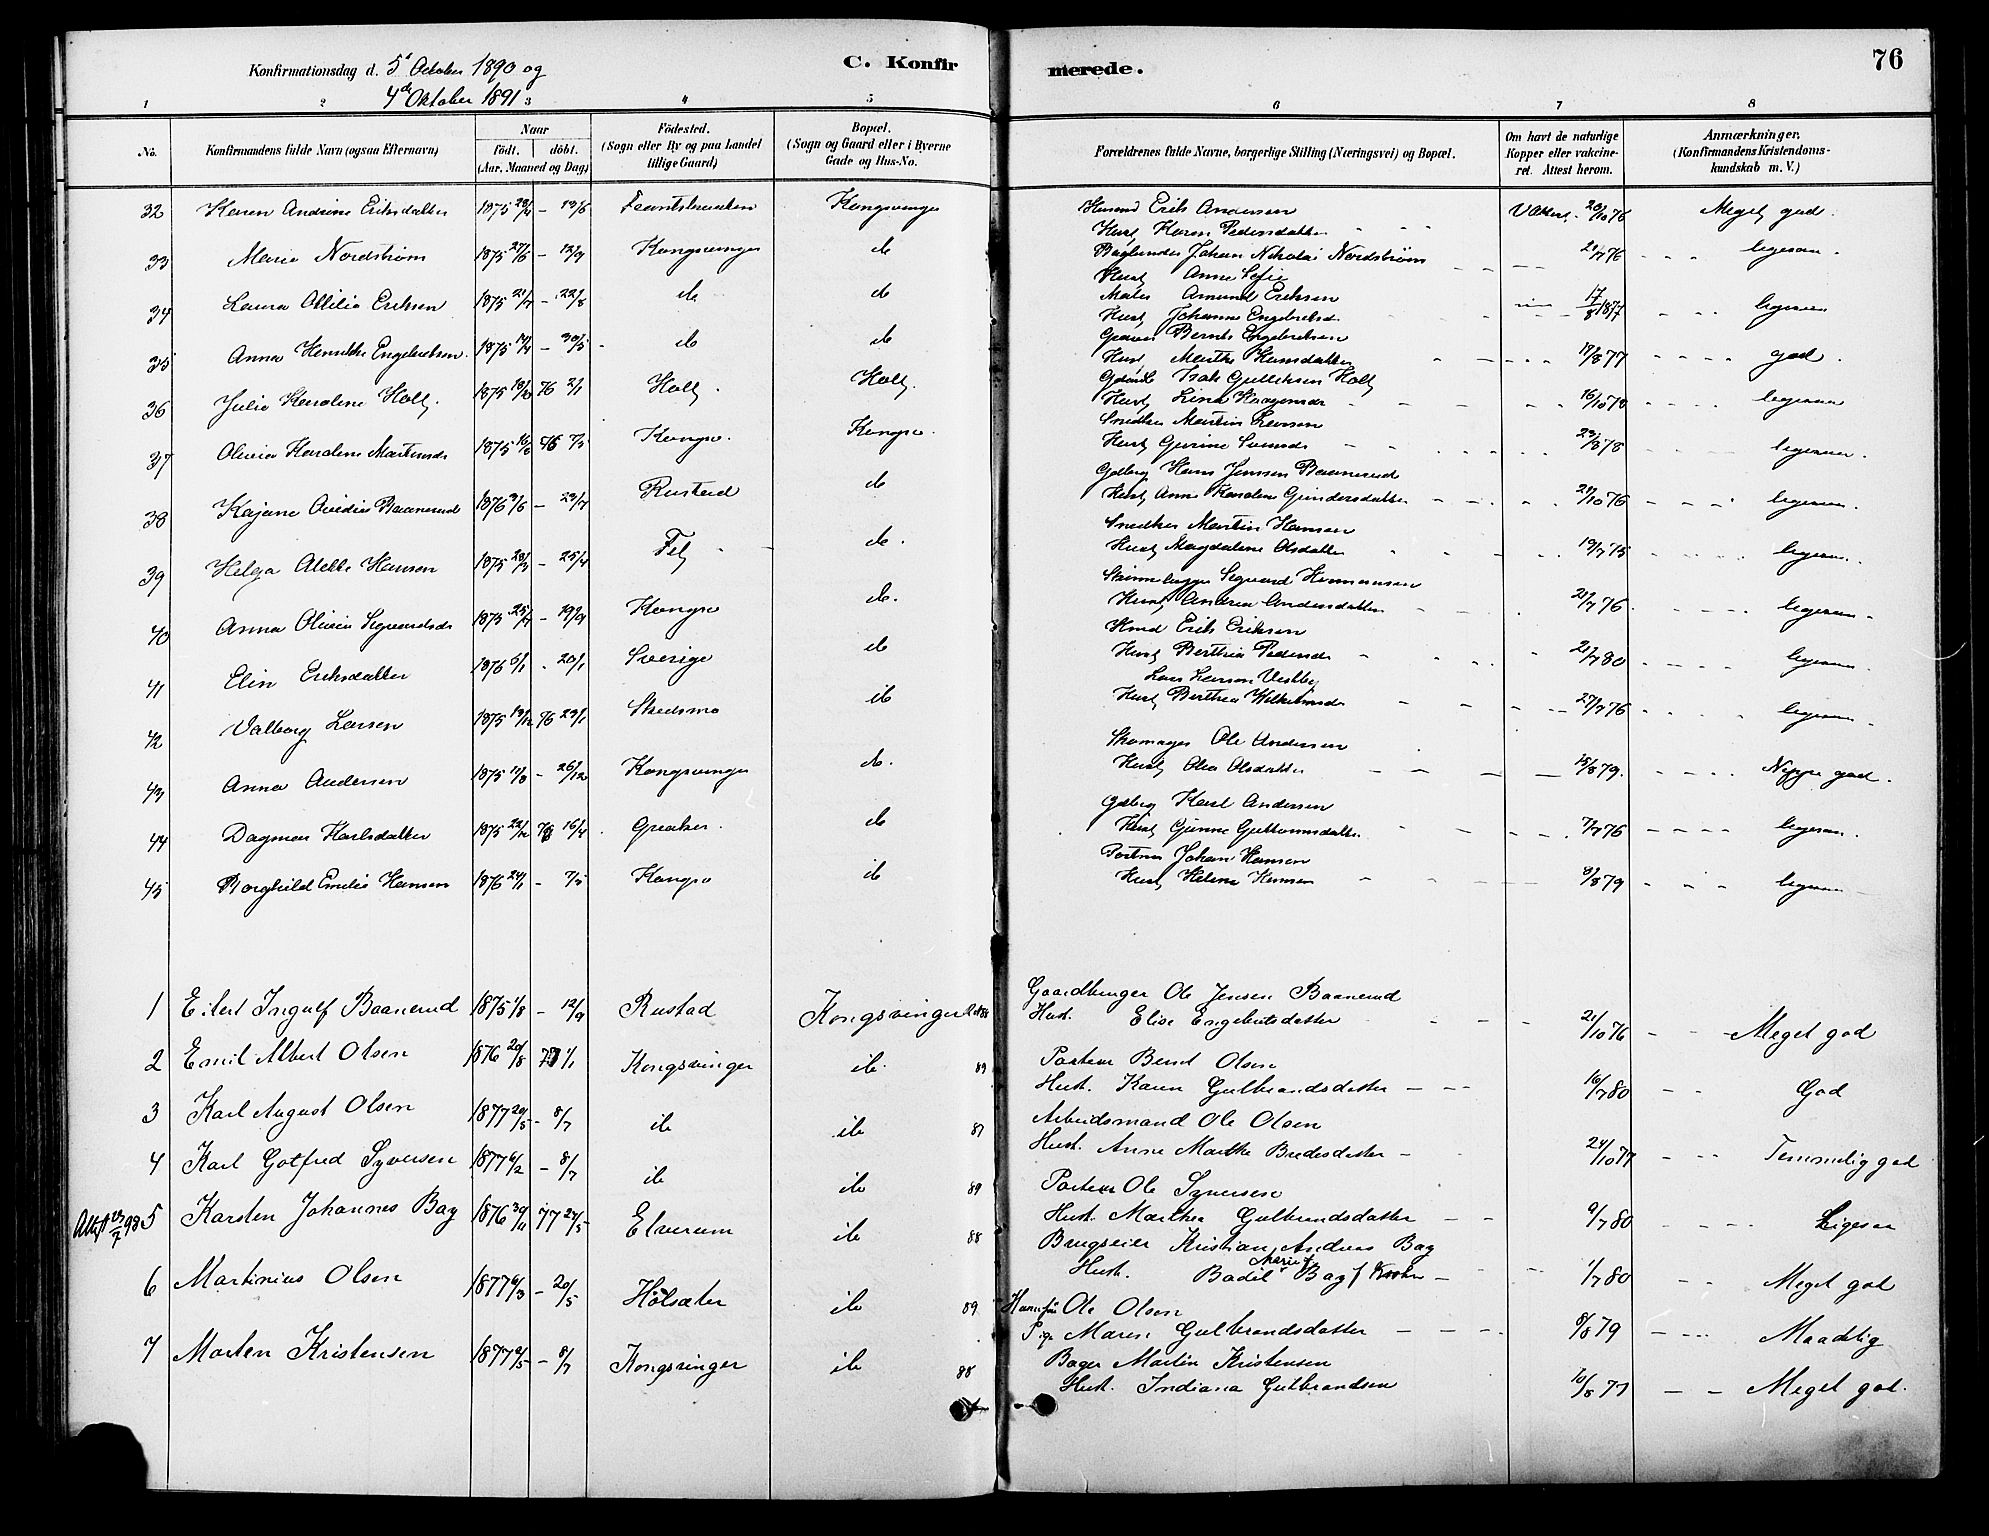 Konfirmationsdag d. 5' October 1890 og
4de Oktober 1891
C. Konfir
merede.
76
1 2 3 4 5 6 7 8
No. Konfirmandens fulde Navn (ogsaa Efternavn) Naar födt. döbt. (Aar, Maaned og Dag) Födested. (Sogn eller By og paa Landet tillige Gaard) Bopæl. (Sogn og Gaard eller i Byerne Gade og Hus-No. Forældrenes fulde Navne, borgerlige Stilling (Næringsvei) og Bopæl. Om havt de naturlige Kopper eller vakcineret. Attest herom. Anmærkninger. (Konfirmandens Kristendomskundskab m. V.)
32 Karen Andrine Eriksdatter 1875 – 19/6 Kongsvinger Husmd Erik Andersen
Hust Karen Pedersdatter 20/10 76 Meget god.
33 Marie Nordström 1875 27/5 – 12/9 Kongsvinger do Johan Nikolai Nordström
Hust Anne Sofie 21/7 76 ligesaa.
34 Laura Ottilia Eriksen 1875 21/7 – 22/8 do do Maler Amund Eriksen
Hust Johanne Engebretsd. 17/8 1877 ligesaa
35 Anna Henrikke Engebretsen. 1875 – 30/5 do do Bernt Engebretsen
Hust Marthe 19/8 77 god.
36 Julie Karoline Holt. 1875 76 2/1 Holt. Holt. Isak Gulliksen Holt
Hust Lina 16/10 78 ligesaa
37 Olivia Karoline Martinsd. 1875 76 7/5 Kongsv. Kongsv. Snedker Martin Larsen
Hust Gurine 23/8 78 ligesaa.
38 Kajane Ovidia Baanerud 1876 9/6 – 23/7 Rustad do Gdbrg Hans Jensen Baanerud
Hust Anne Karoline Gundersdatter 21/10 76 ligesaa.
39 Helga Alette Hansen 1875 – 25/4 Fet do. Snedker Martin Hansen
Hust Magdalene Olsdatter 19/7 75 ligesaa.
40 Anna Olivia Segvardsd. 1875 25/7 – 19/9 Kongsv do. Segvard Hermansen
Hust Andrea Andersdatter 21/7 76. ligesaa.
41 Elin Eriksdatter 1876 5/1 – 20/1 Sverige do Erik Eriksen
Hust Berthia Pedersd. 21/7 80 ligesaa.
42 Valborg Larsen 1875 19/12 76 23/1 Skedsmo do Lars Larsen Vestby
Hust Berthea Wilhelmsd. 27/7 76 ligesaa.
43 Anna Andersen 1875 11/8 – 26/12 Kongsvinger do. Skomager Ole Andersen
Hust Olea Olsdatter 15/8 79. Neppe god.
44 Dagmar Karlsdatter 1875 22/12 76 16/4 Greaker. do Gdbrg Karl Andersen
Hust Gunne Guttormsdatter 7/7 76 ligesaa.
45 Borghild Emilie Hansen 1876 24/1 – 7/5 Kongsv do Postmr Johan Hansen
Hust Helene Hansen 8/8 79 ligesaa
1 Eilert Ingulf Baanerud 1875 1/8 – 12/9 Rustad Kongsvinger 88 Gaardbruger Ole Jensen Baanerud
Hust. Elise Engebretsdatter 21/10 76 Meget god
2 Emil Albert Olsen 1876 20/8 77 1/1 Kongsvinger do. 89 Bernt Olsen
Hust. Karen Gulbrandsdatter 16/7 80 God
3 Karl August Olsen 1877 20/5 – 8/7 do do 87 Arbeidsmand Ole Olsen
Hust. Anne Marthe Bredesdatter 24/10 77 Temmelig god
4 Karl Gotfred Syversen 1877 6/2 – 8/7 do do 89 Ole Syversen
Hust. Marthea Gulbrandsdatter 9/7 80 Ligesaa
Attest 23/7 98 5 Karsten Johannes Bay 1876 30/11 77 27/5 Elverum do 88 Brugseier Kristian Andreas Bay
Hust. Bodil Marie Bay f 1/7 80 Meget god
6 Martinius Olsen 1877 6/3 – 20/5 Holsæter do 89 Ole Olsen
Pige Maren Gulbrandsdatter 8/8 79 Maadelig
7 Morten Kristensen 1877 9/5 – 8/7 Kongsvinger do 88 Bager Martin Kristensen
Hust. Indiana Gulbrandsen 10/8 77 Meget god.